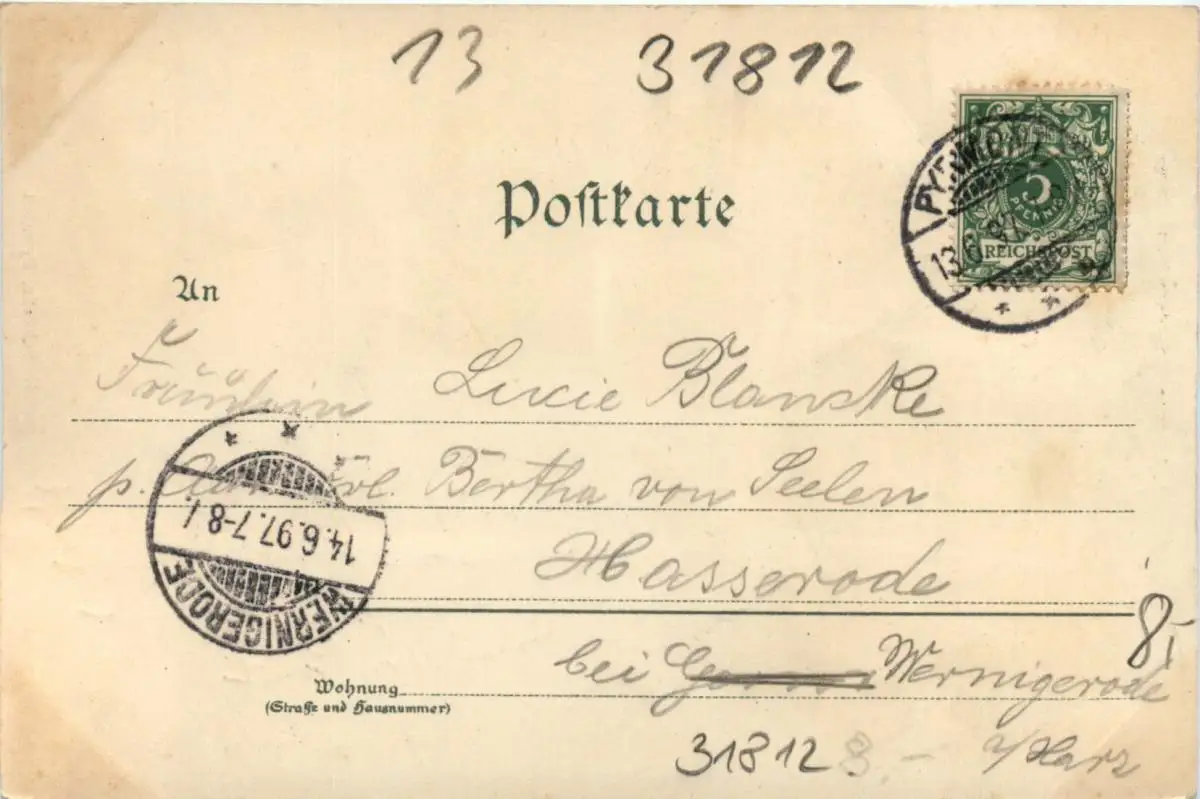 13 31812
5
PFENNIG
REICHSPOST
PYRMONT
13.6.97
Postkarte
An
Fräulein Lucie Blanske
p. Adr. Frl. Bertha von Seelen
Hasserode
14.6.97.7-8
WERNIGERODE
8,-
bei Wernigerode
Wohnung
(Straße und Hausnummer)
31812 8.-
a/Harz